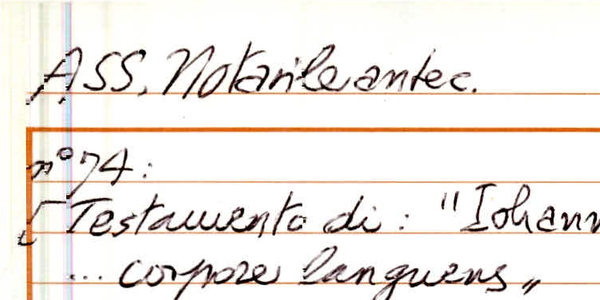 ASS, Notarile antec.
n° 74:
[Testamento di: "Iohann
... corpore languens„